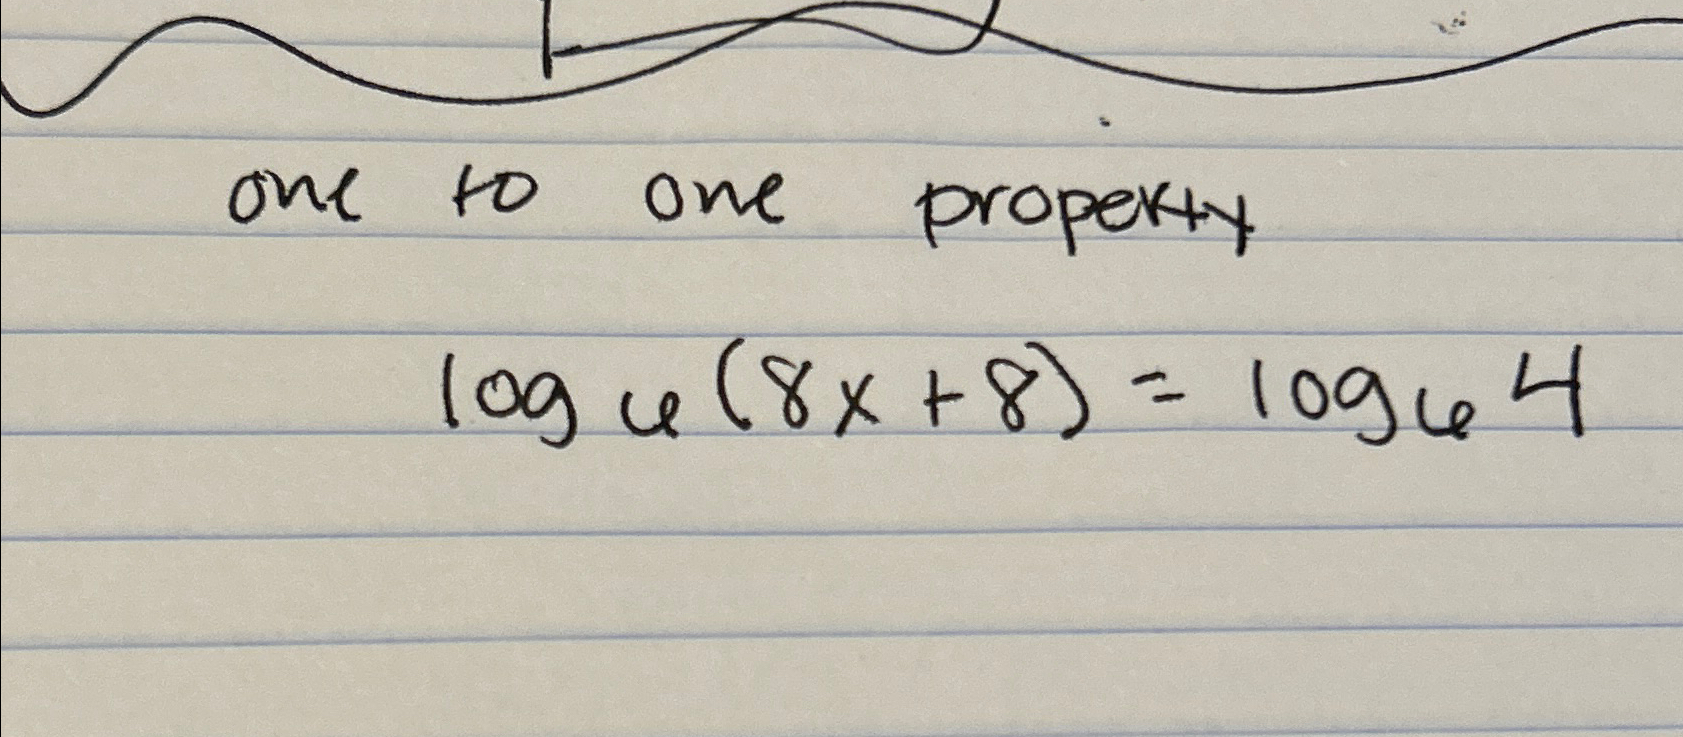 one to one property
log₆(8x+8) = log₆4